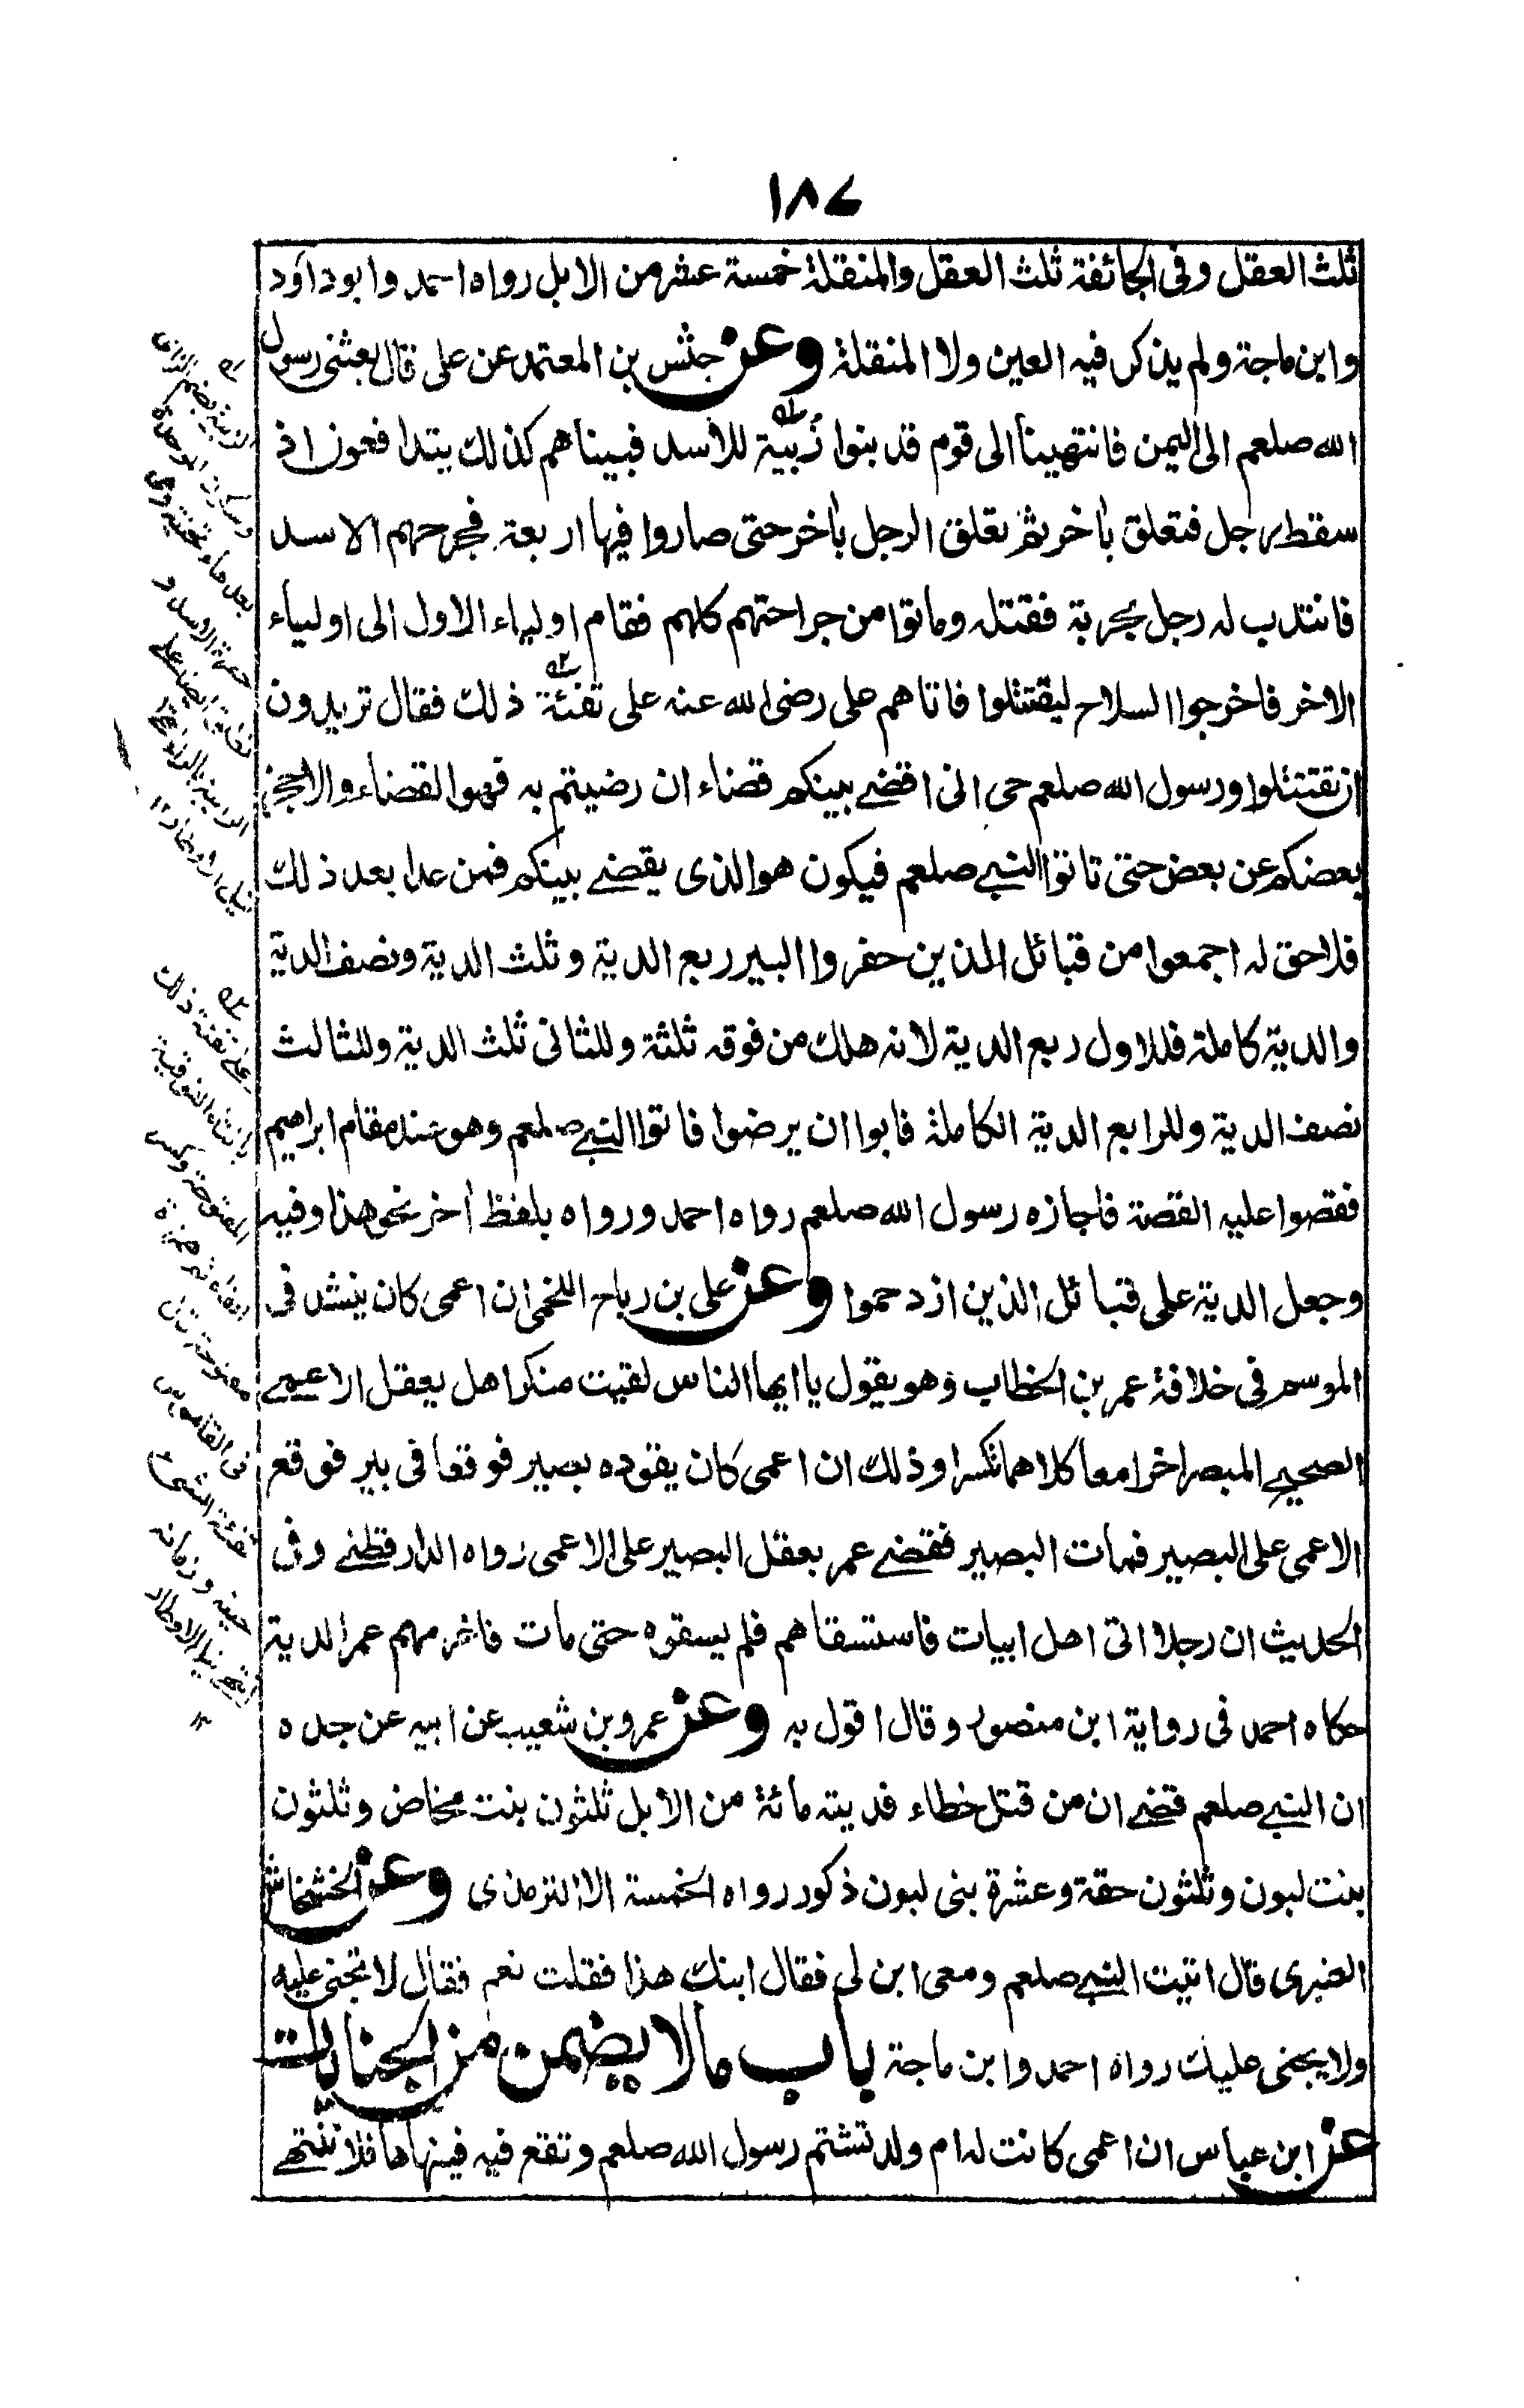 ١٨٧
ثلث العقل وفى الجائفة ثلث العقل والمنقلة خمسة عشر من الابل رواه احمد وابوداود
وابن ماجة ولم يذكر فيه العين ولا المنقلة وعن حنش بن المعتمد عن على قال بعثنى رسول
الله صلعم الى اليمن فانتهينا الى قوم قد بنوا زُبية للأسد فبيناهم كذلك يتدافعون اذ
سقط رجل فتعلق بأخر ثم تعلق الرجل بأخر حتى صاروا فيها اربعة فجرحهم الاسد
فانتدب له رجل بحربة فقتله وماتوا من جراحتهم كلهم فقام اولياء الاول الى اولياء
الاخر فاخرجوا السلاح ليقتتلوا فاتاهم على رضى الله عنه على تفئة ذلك فقال تريدون
ان تقتتلوا ورسول الله صلعم حى انى اقضے بينكم قضاء ان رضيتم به فهوا القضاء والا حجز
بعضكم عن بعض حتى تاتوا النبے صلعم فيكون هو الذى يقضے بينكم فمن عدا بعد ذلك
فلا حق له اجمعوا من قبائل الذين حفروا البير ربع الدية وثلث الدية ونصف الدية
والدية كاملة فللاول ربع الدية لانه هلك من فوقه ثلثة وللثانى ثلث الدية وللثالث
نصف الدية وللرابع الدية الكاملة فابوا ان يرضوا فاتوا النبے صلعم وهو عند مقام ابراهيم
فقصوا عليه القصة فاجازه رسول الله صلعم رواه احمد ورواه بلفظ أخر نحو هذا وفيه
وجعل الدية على قبائل الذين ازدحموا وعن على بن رباح اللخمى ان اعمى كان ينشد فى
الموسم فى خلافة عمر بن الخطاب وهو يقول يا ايها الناس لقيت منكرا هل يعقل الاعمے
الصحيح المبصرا خرا معا كلاهما تكسرا وذلك ان اعمى كان يقوده بصير فوقعا فى بير فوقع
الاعمى على البصير فمات البصير فقضے عمر بعقل البصير على الاعمى رواه الدارقطنے وفى
الحديث ان رجلا اتى اهل ابيات فاستسقاهم فلم يسقوه حتى مات فاغرمهم عمر الدية
حكاه احمد فى رواية ابن منصور وقال اقول به وعن عمرو بن شعيب عن ابيه عن جده
ان النبے صلعم قضے ان من قتل خطاء فديته مائة من الابل ثلثون بنت مخاض وثلثون
بنت لبون وثلثون حقة وعشرة بنى لبون ذكور رواه الخمسة الا الترمذى وعن الخشخاش
العنبرى قال اتيت النبے صلعم ومعى ابن لى فقال ابنك هذا فقلت نعم فقال لا تجنى عليه
ولا يجنى عليك رواه احمد وابن ماجة باب مالا يضمن من الجنايات
عن ابن عباس ان اعمى كانت له ام ولد تشتم رسول الله صلعم وتقع فيه فينهاها فلا تنتهے
الزبية بضم الزاى
وسكون الموحدة
بعدها تحتية وهى
حفرة الاسد و
على تفئة ذلك
بالتاء الفوقية
المفتوحة وكسر
الفاء ثم همزة
مفتوحة قال
فى القاموس
تفئة الشئ
حينه وزمانه
انتهے نيل الاوطار
١٢